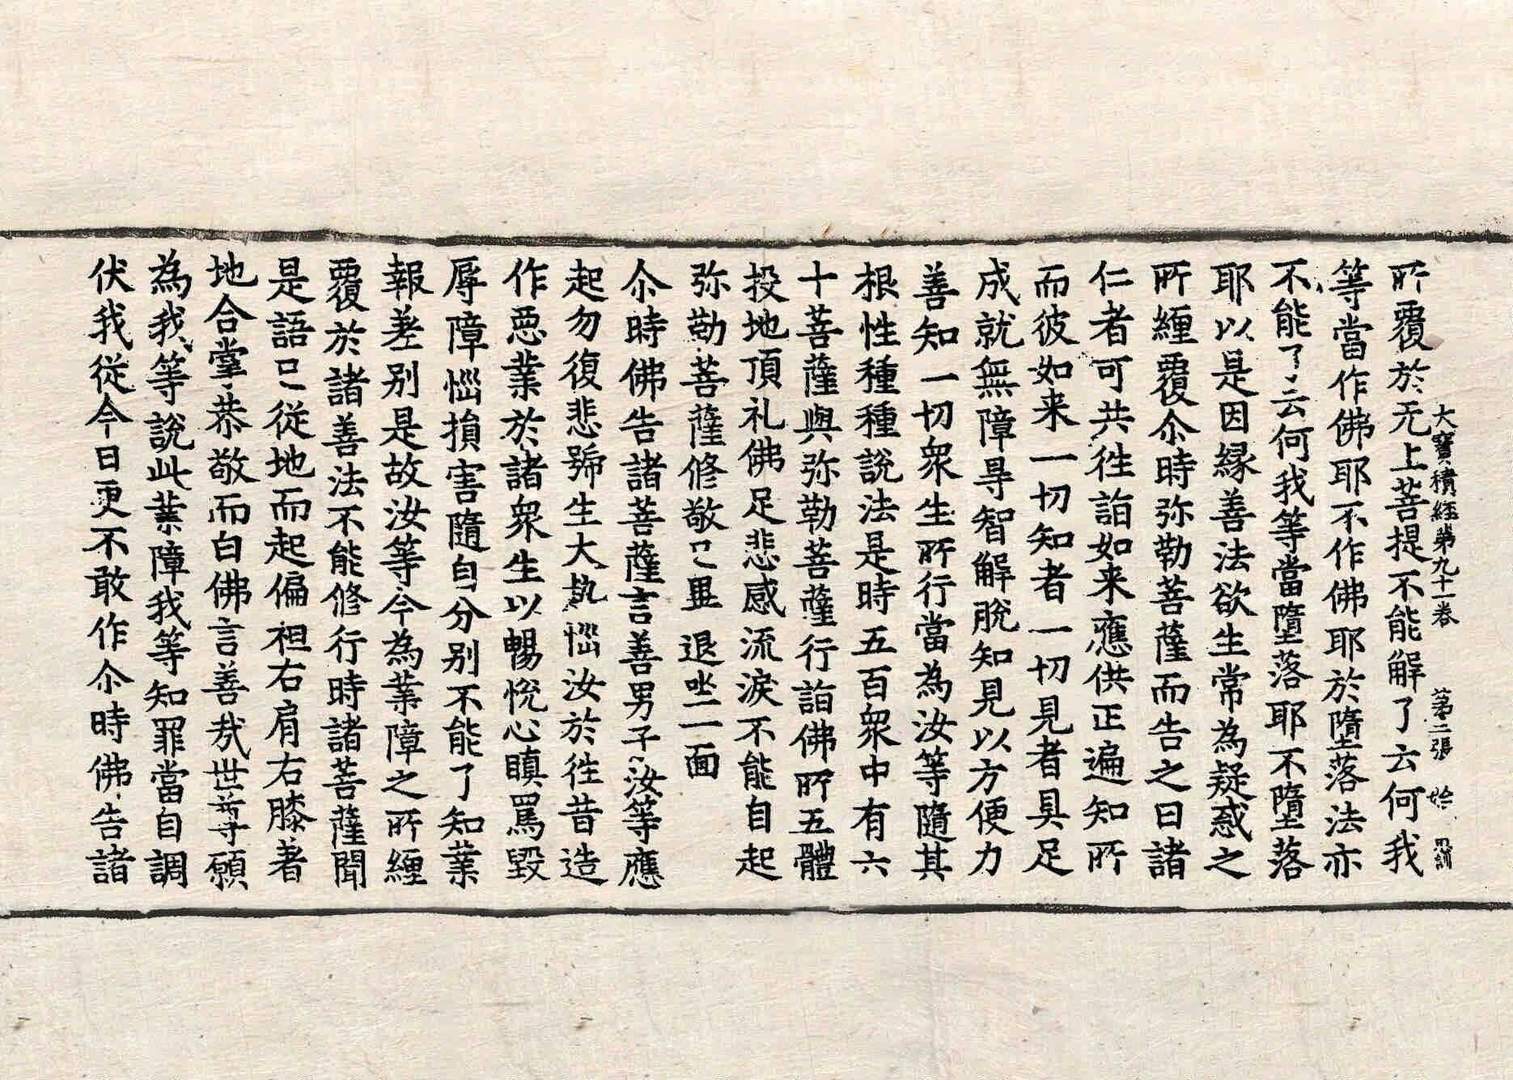 大寶積經第九十一卷 第二張 始
所覆於无上菩提不能解了云何我
等當作佛耶不作佛耶於墮落法亦
不能了云何我等當墮落耶不墮落
耶以是因緣善法欲生常為疑惑之
所纏覆尒時弥勒菩薩而告之曰諸
仁者可共徃詣如来應供正遍知所
而彼如来一切知者一切見者具足
成就無障㝵智解脫知見以方便力
善知一切眾生所行當為汝等隨其
根性種種說法是時五百眾中有六
十菩薩與弥勒菩薩行詣佛所五體
投地頂礼佛足悲感流淚不能自起
弥勒菩薩修敬已畢退坐一面
尒時佛告諸菩薩言善男子汝等應
起勿復悲號生大熱惱汝於徃昔造
作惡業於諸眾生以暢悅心瞋罵毀
辱障惱損害隨自分別不能了知業
報差別是故汝等今為業障之所纏
覆於諸善法不能修行時諸菩薩聞
是語已從地而起偏袒右肩右膝著
地合掌恭敬而白佛言善哉世尊願
為我等說此業障我等知罪當自調
伏我從今日更不敢作尒時佛告諸